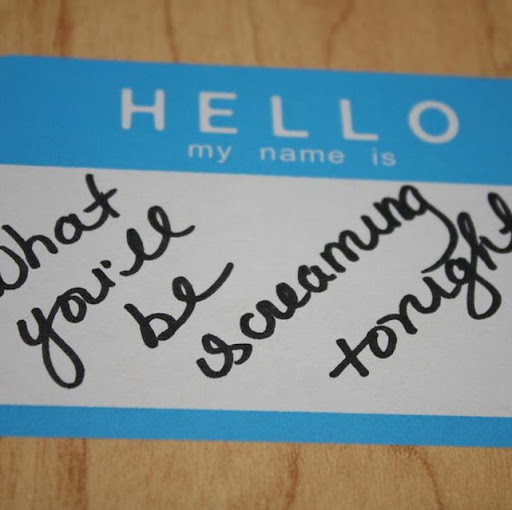 HELLO
my name is
What
you'll
be
screaming
tonight